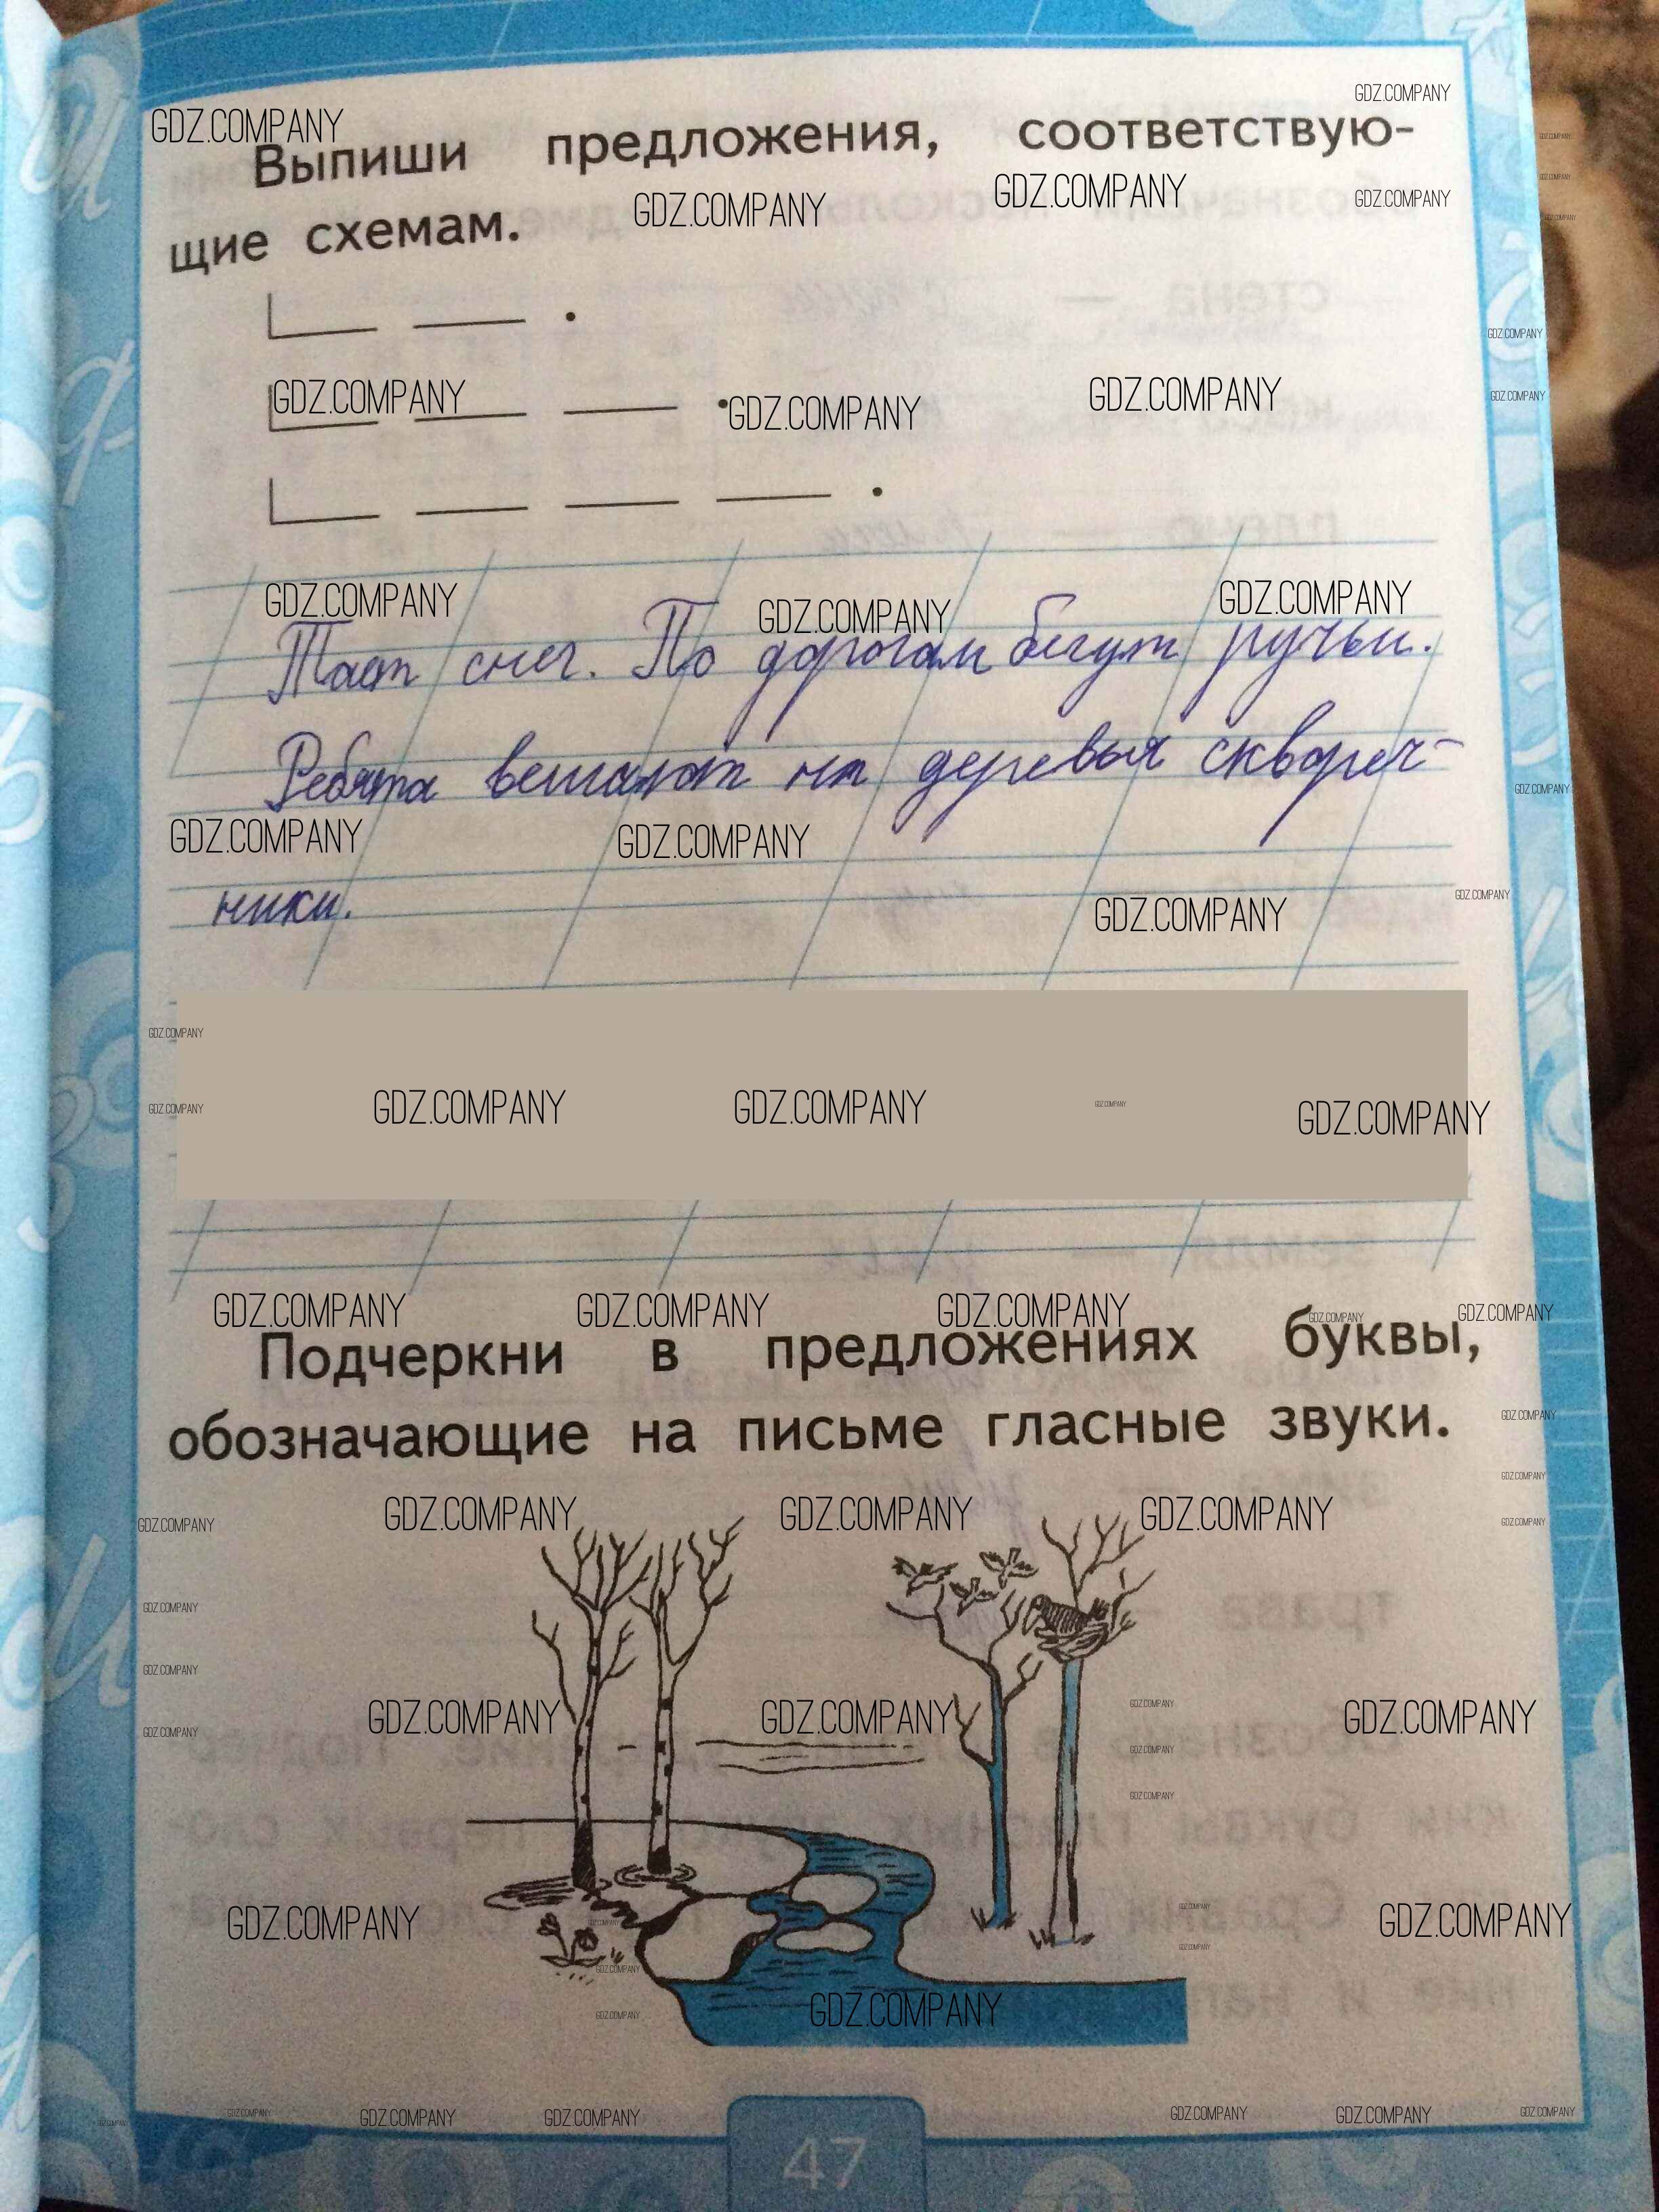 Выпиши предложения, соответствую-
щие схемам.
Тает снег. По дорогам бегут ручьи.
Ребята вешают на деревья сквореч-
ники.
Подчеркни в предложениях буквы,
обозначающие на письме гласные звуки.
47
GDZ.COMPANY